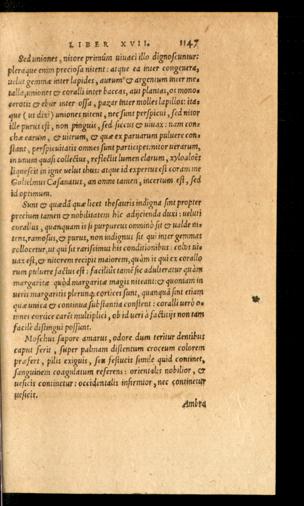 LIBER XVII. 1147
Sed uniones, nitore primùm uiuaci illo dignoscuntur:
pleraque enim preciosa nitent: atque ea inter congenera,
uelut gemmæ inter lapides, aurum & argentum inter me-
talla, uniones & coralli inter baccas, aut plantas,
& ebur inter ossa, pazar inter molles lapillos: ita-
que (ut dixi) uniones nitent, nec sunt perspicui, sed nitor
ille purus est, non pinguis, sed siccus & uiuax: nam con-
chæ earum, & uitrum, & quæ ex paruarum puluere con-
stant, perspicuitatis omnes sunt participes: nitor uerarum,
in unum quasi collectus, reflectit lumen clarum, xyloaloës
liquescit in igne uelut thus: atque id expertus est coram me
Gulielmus Casanatus, an omne tamen, incertum est, sed
id optimum.
Sunt & quædã quæ licet thesauris indigna sint propter
precium tamen & nobilitatem hic adijcienda duxi: ueluti
corallus, quanquam is si purpureus omninò sit & ualde ni-
tens, ramosus, & purus, non indignus sit qui inter gemmas
collocetur, ut qui sit rarissimus his conditionibus:
uax est, & nitorem recipit maiorem, quàm is qui ex corallo
rum puluere factus est: faciliùs tamẽ sic adulteratur quàm
margaritæ quòd margaritæ magis niteant: & quoniam in
ueris margaritis plerunq; cortices sunt, quanquã sint etiam
quæ unica & continua substantia constent: coralli uerò o-
mnes cortice carẽt multiplici, ob id ueri à factitijs non tam
facilè distingui possunt.
Moschus sapore amarus, odore dum teritur dentibus
caput ferit, super palmam distentum croceum colorem
præfert, pilis exiguis, seu festucis simile quid continet,
sanguinem coagulatum referens: orientalis nobilior, &
uesicis continetur: occidentalis infirmior, nec continetur
uesicis.
Ambra